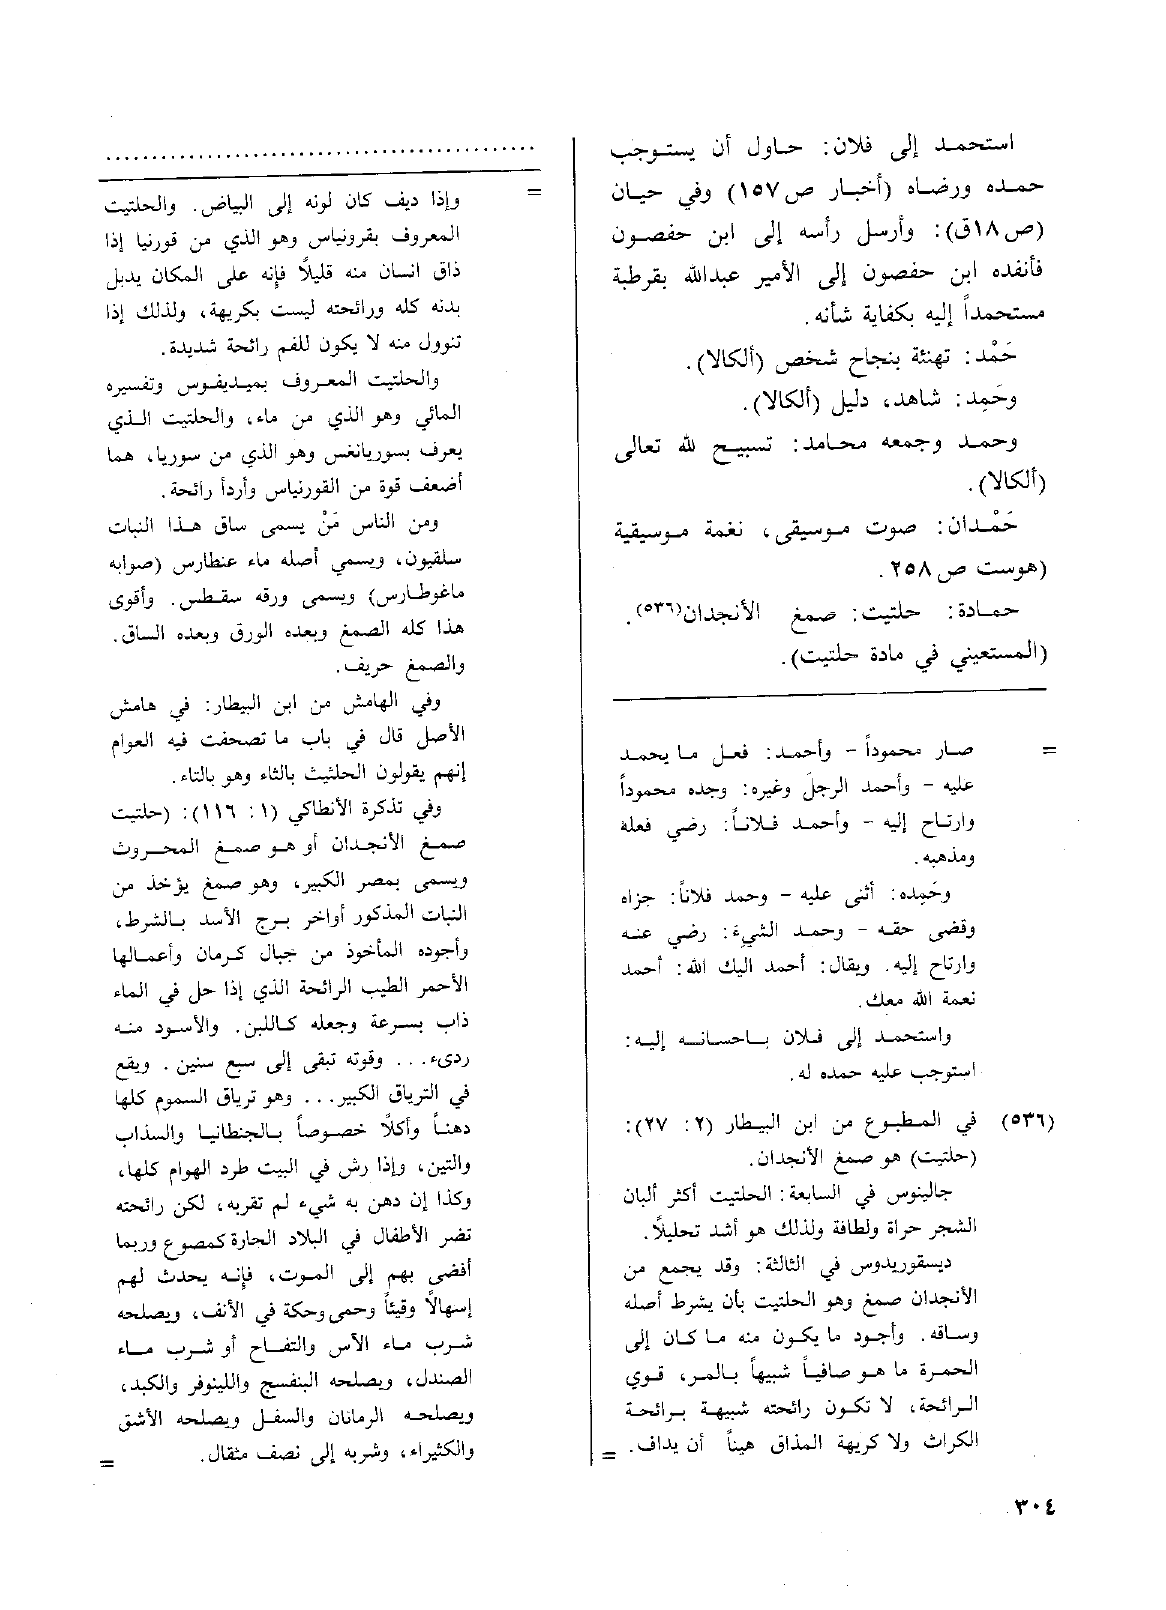 استحمد إلى فلان: حاول أن يستوجب
حمده ورضاه (أخبار ص١٥٧) وفي حيان
(ص١٨ق): وأرسل رأسه إلى ابن حفصون
فأنفده ابن حفصون إلى الأمير عبدالله بقرطبة
مستحمداً إليه بكفاية شأنه.
حَمْد: تهنئة بنجاح شخص (ألكالا).
وحَمِد: شاهد، دليل (ألكالا).
وحمد وجمعه محامد: تسبيح لله تعالى
(ألكالا).
حَمْدان: صوت موسيقي، نغمة موسيقية
(هوست ص٢٥٨.
حمادة: حلتيت: صمغ الأنجدان(٥٣٦).
(المستعيني في مادة حلتيت).
= صار محموداً - وأحمد: فعل ما يحمد
عليه - وأحمد الرجلَ وغيره: وجده محموداً
وارتاح إليه - وأحمد فلاناً: رضي فعله
ومذهبه.
وحَمِده: أثنى عليه - وحمد فلاناً: جزاه
وقضى حقه - وحمد الشيءَ: رضي عنه
وارتاح إليه. ويقال: أحمد اليك الله: أحمد
نعمة الله معك.
واستحمد إلى فلان باحسانه إليه:
استوجب عليه حمده له.
(٥٣٦) في المطبوع من ابن البيطار (٢: ٢٧):
(حلتيت) هو صمغ الأنجدان.
جالينوس في السابعة: الحلتيت أكثر ألبان
الشجر حراة ولطافة ولذلك هو أشد تحليلاً.
ديسقوريدوس في الثالثة: وقد يجمع من
الأنجدان صمغ وهو الحلتيت بأن يشرط أصله
وساقه. وأجود ما يكون منه ما كان إلى
الحمرة ما هو صافياً شبيهاً بالمر، قوي
الرائحة، لا تكون رائحته شبيهة برائحة
الكراث ولا كريهة المذاق هيناً أن يداف. =
........................................
= وإذا ديف كان لونه إلى البياض. والحلتيت
المعروف بقرونياس وهو الذي من قورنيا إذا
ذاق انسان منه قليلاً فإنه على المكان يدبل
بدنه كله ورائحته ليست بكريهة، ولذلك إذا
تنوول منه لا يكون للفم رائحة شديدة.
والحلتيت المعروف بميديفوس وتفسيره
المائي وهو الذي من ماء، والحلتيت الذي
يعرف بسوريانغس وهو الذي من سوريا، هما
أضعف قوة من القورنياس وأردأ رائحة.
ومن الناس مَنْ يسمى ساق هذا النبات
سلقيون، ويسمي أصله ماء عنطارس (صوابه
ماغوطارس) ويسمى ورقه سقطس. وأقوى
هذا كله الصمغ وبعده الورق وبعده الساق.
والصمغ حريف.
وفي الهامش من ابن البيطار: في هامش
الأصل قال في باب ما تصحفت فيه العوام
إنهم يقولون الحلثيث بالثاء وهو بالتاء.
وفي تذكرة الأنطاكي (١: ١١٦): (حلتيت
صمغ الأنجدان أو هو صمغ المحروث
ويسمى بمصر الكبير، وهو صمغ يؤخذ من
النبات المذكور أواخر برج الأسد بالشرط،
وأجوده المأخوذ من جبال كرمان وأعمالها
الأحمر الطيب الرائحة الذي إذا حل في الماء
ذاب بسرعة وجعله كاللبن. والأسود منه
رديء... وقوته تبقى إلى سبع سنين. ويقع
في الترياق الكبير... وهو ترياق السموم كلها
دهناً وأكلاً خصوصاً بالجنطانيا والسذاب
والتين، وإذا رش في البيت طرد الهوام كلها،
وكذا إن دهن به شيء لم تقربه، لكن رائحته
تضر الأطفال في البلاد الحارة كمصوع وربما
أفضى بهم إلى الموت، فإنه يحدث لهم
إسهالاً وقيئاً وحمى وحكة في الأنف، ويصلحه
شرب ماء الآس والتفاح أو شرب ماء
الصندل، ويصلحه البنفسج واللينوفر والكبد،
ويصلحه الرمانان والسفل ويصلحه الأشق
والكثيراء، وشربه إلى نصف مثقال. =
٣٠٤